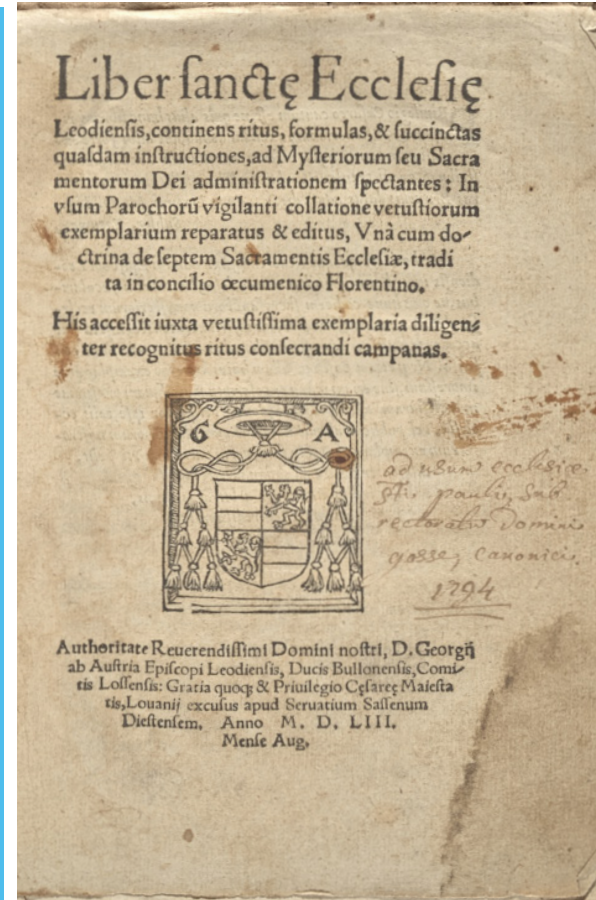 Liber ſanctę Eccleſię
Leodienſis, continens ritus, formulas, & ſuccinctas
quaſdam inſtructiones, ad Myſteriorum ſeu Sacra
mentorum Dei adminiſtrationem ſpectantes: In
vſum Parochorū vigilanti collatione vetuſtiorum
exemplarium reparatus & editus, Vnà cum do-
ctrina de ſeptem Sacramentis Eccleſiæ, tradi
ta in concilio œcumenico Florentino.
His acceſſit iuxta vetuſtiſſima exemplaria diligen-
ter recognitus ritus conſecrandi campanas.
G A
ad usum ecclesiæ
Sti pauli, sub
rectoratu Domini
gosse, canonici.
1794
Authoritate Reuerendiſſimi Domini noſtri, D. Georgij
ab Auſtria Epiſcopi Leodienſis, Ducis Bullonenſis, Comi-
tis Loſſenſis: Gratia quoqꝫ & Priuilegio Cęſaręę Maieſta
tis, Louanij excuſus apud Seruatium Saſſenum
Dieſtenſem. Anno M. D. LIII.
Menſe Aug.